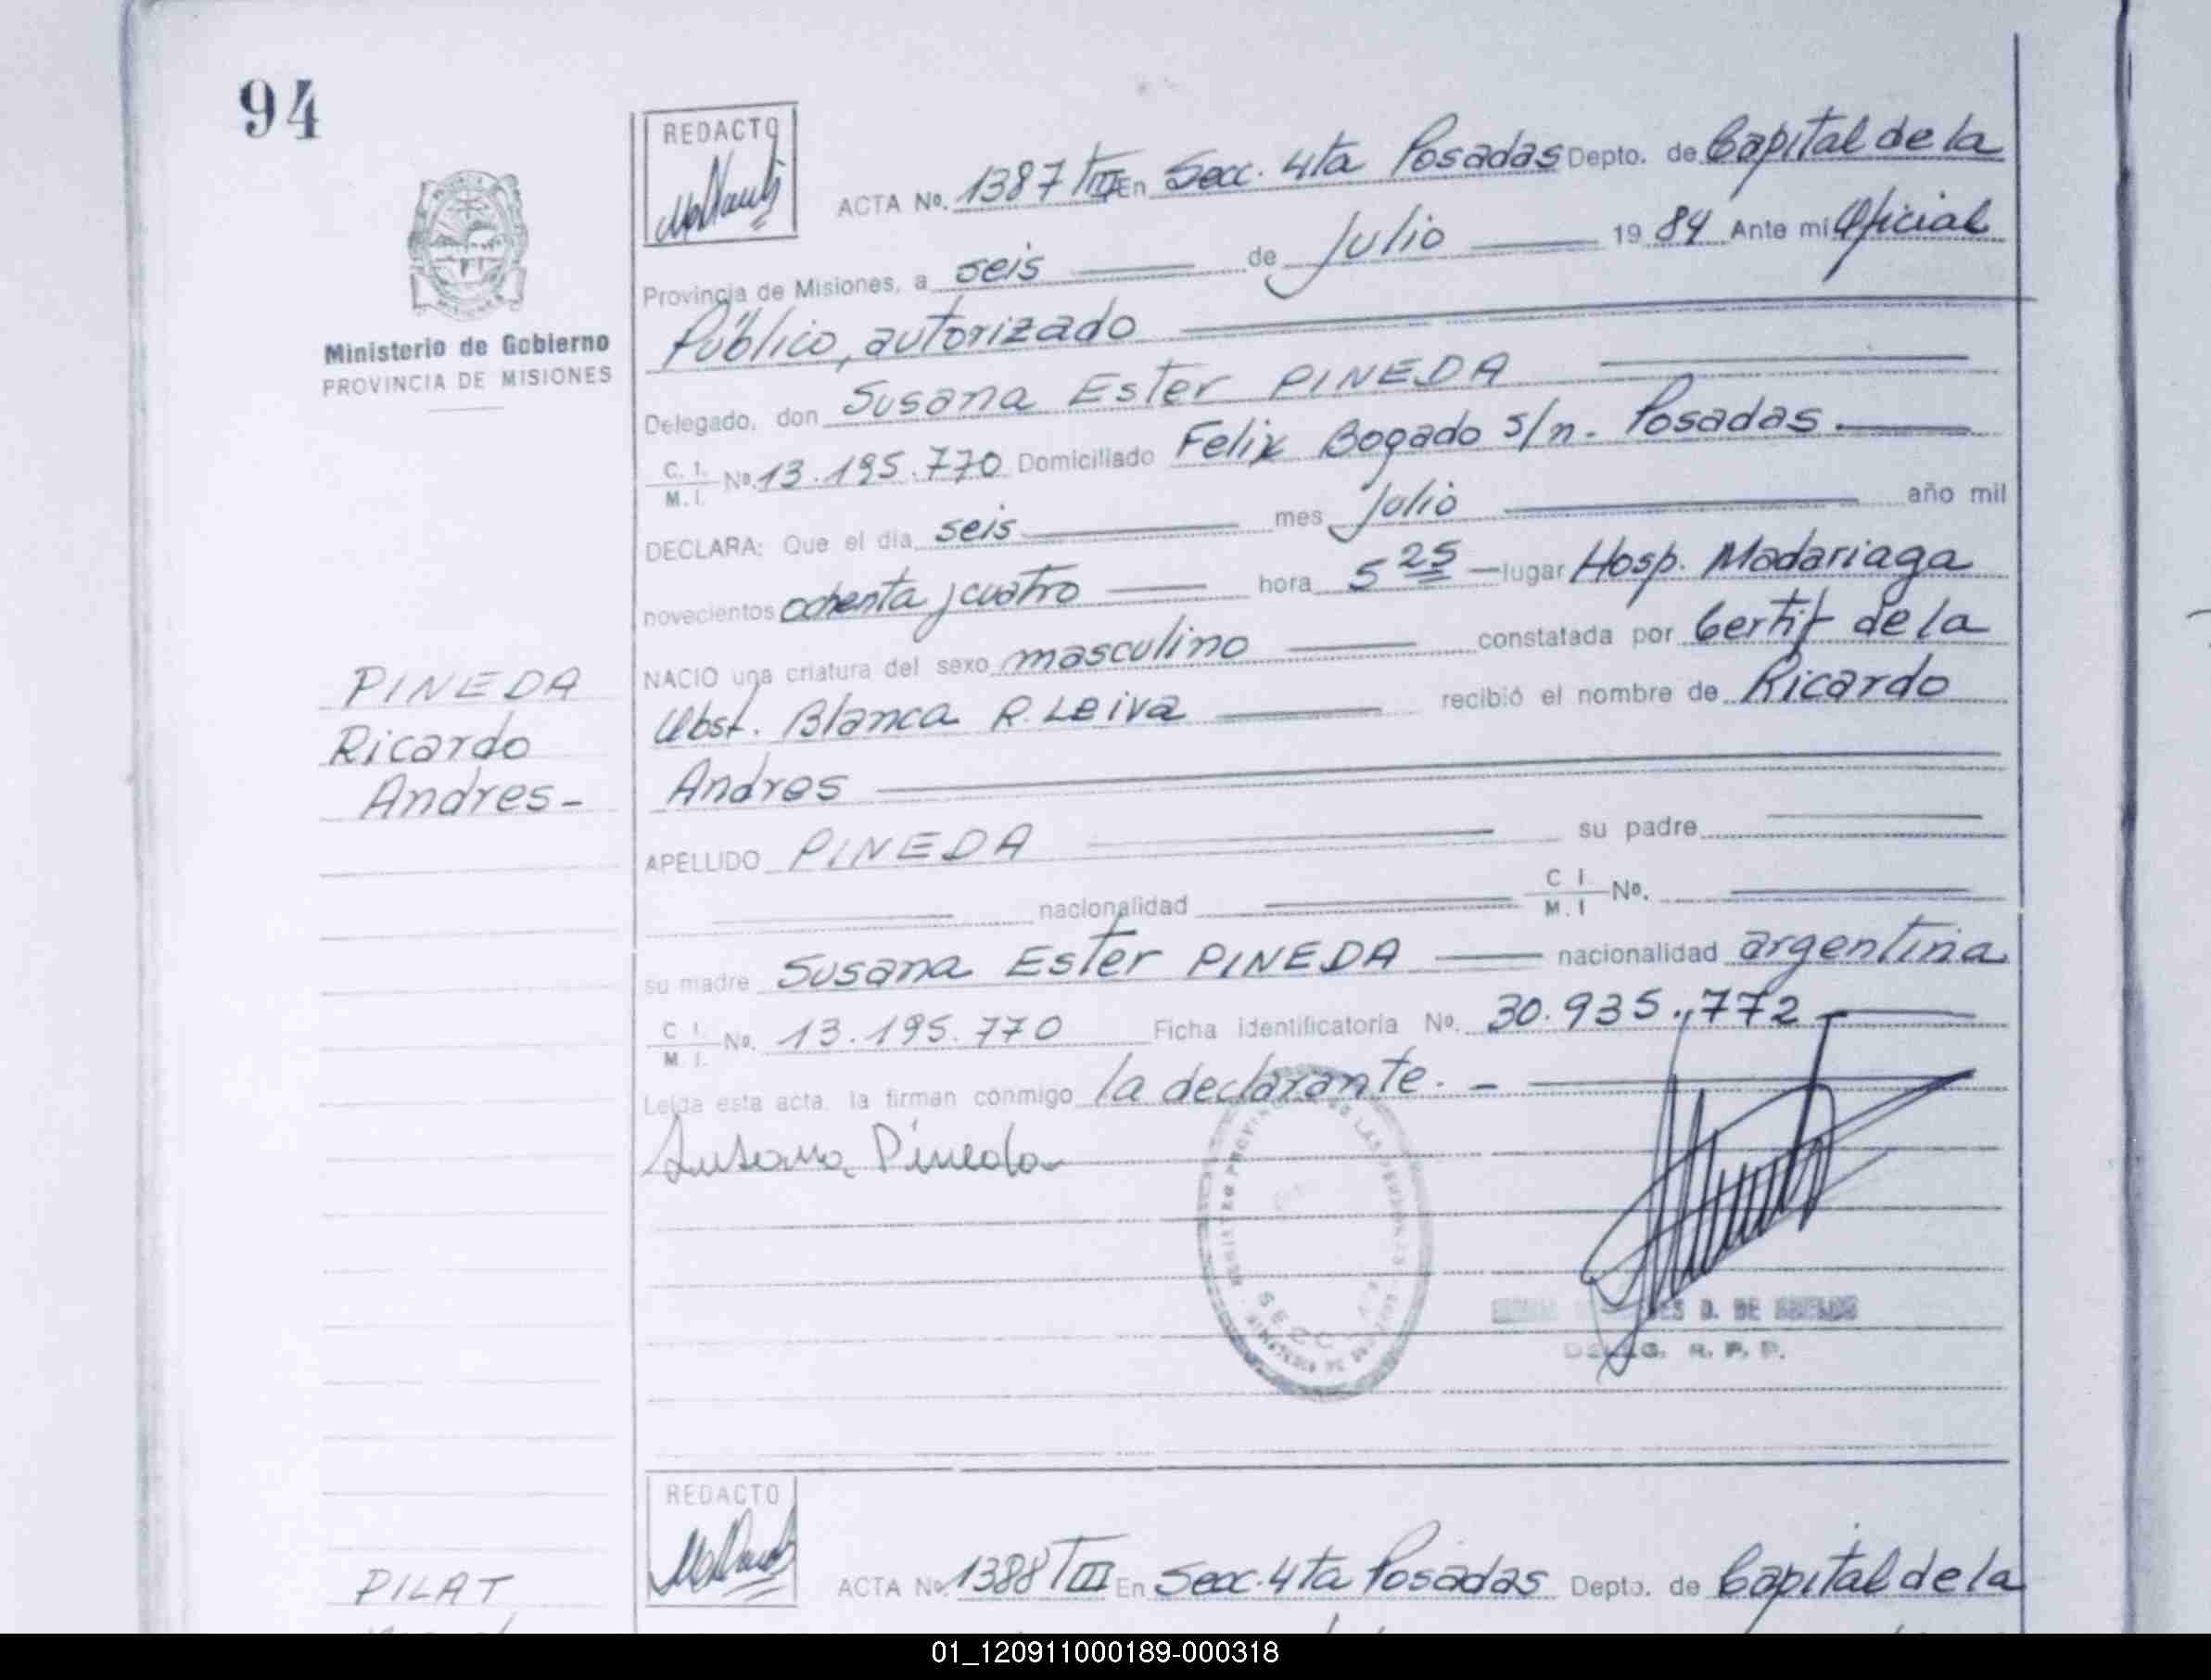 94
Ministerio de Gobierno
PROVINCIA DE MISIONES
REDACTO
ACTA Nº. 1387 TIII En Secc. 4ta Posadas Depto. de Capital de la
Provincia de Misiones, a seis de Julio 1984 Ante mi Oficial
Público, autorizado
Delegado, don Susana Ester PINEDA
C. I. M. I. Nº. 13.195.770 Domiciliado Felix Bogado s/n. Posadas.
DECLARA: Que el día seis mes Julio año mil
novecientos ochenta y cuatro hora 5 25 lugar Hosp. Madariaga
NACIO una criatura del sexo masculino constatada por Certif de la
Obst. Blanca R. Leiva recibió el nombre de Ricardo
Andres
APELLIDO PINEDA su padre
nacionalidad C I M. I Nº.
su madre Susana Ester PINEDA nacionalidad argentina
C I. M. I. Nº. 13.195.770 Ficha identificatoria Nº. 30.935.772
Leída esta acta, la firman conmigo la declarante. -
Susana Pineda
PINEDA
Ricardo
Andres-
R. P. P.
REDACTO
ACTA Nº. 1388 TIII En Secc. 4ta Posadas Depto. de Capital de la
PILAT
01_120911000189-000318